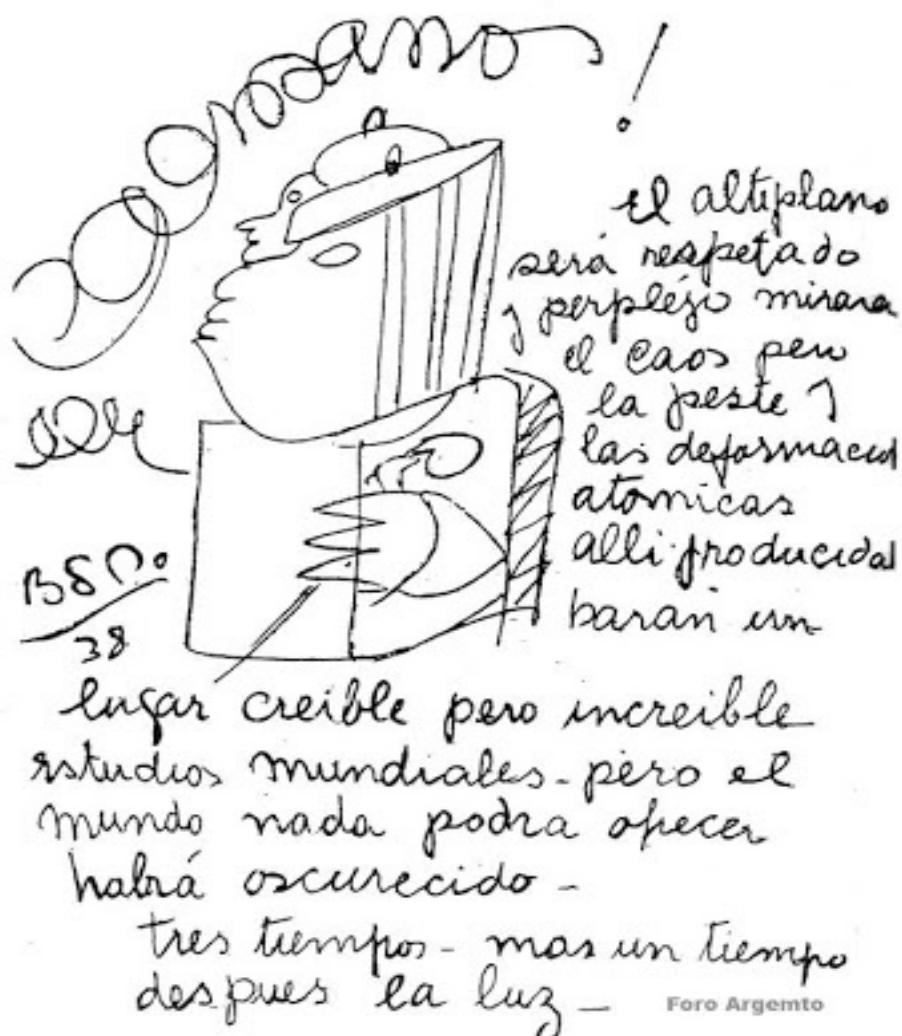 !
el altiplano
será respetado
y perplejo mirara
el caos pero
la peste y
las deformacio
atomicas
alli producidas
baran un
38
lugar creible pero increible
estudios mundiales - pero el
mundo nada podra ofrecer
habrá oscurecido -
tres tiempos - mas un tiempo
despues la luz -
Foro Argemto